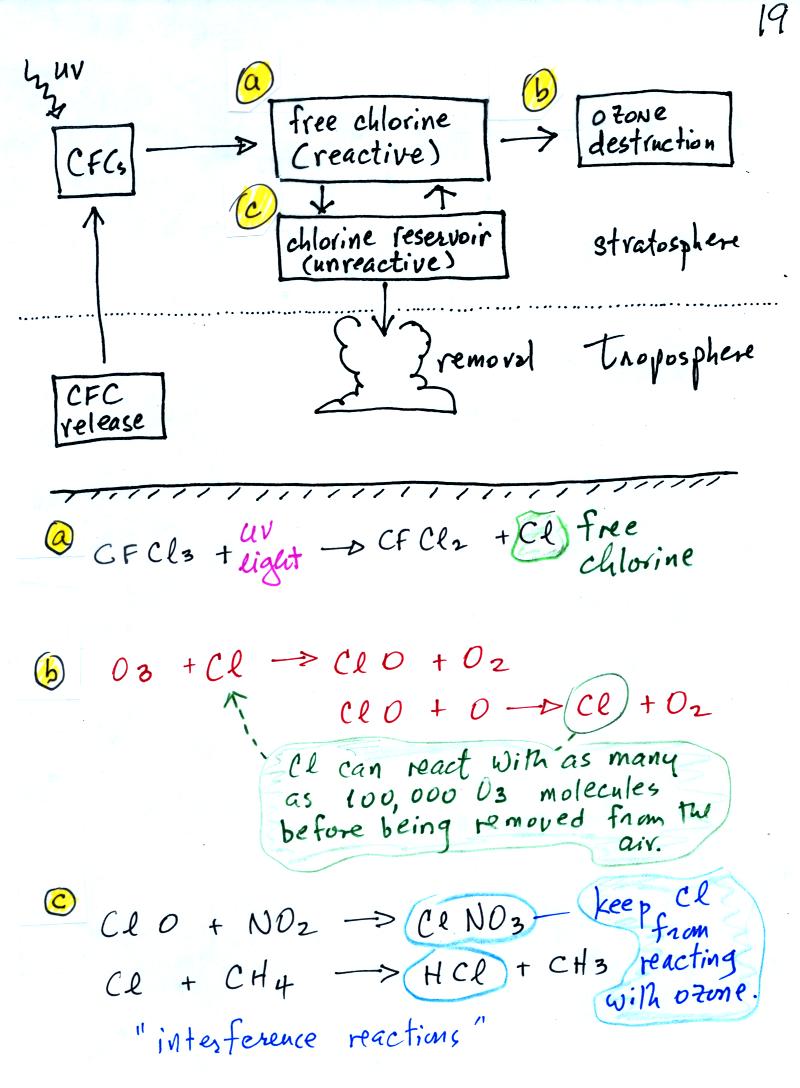 19
UV
a
b
CFCs
free chlorine
(reactive)
ozone
destruction
c
chlorine reservoir
(unreactive)
stratosphere
removal
troposphere
CFC
release
a CFCl3 + UV light → CFCl2 + Cl free
chlorine
b O3 + Cl → ClO + O2
ClO + O → Cl + O2
Cl can react with as many
as 100,000 O3 molecules
before being removed from the
air.
c
ClO + NO2 → ClNO3
Cl + CH4 → HCl + CH3
keep Cl
from
reacting
with ozone.
"interference reactions"